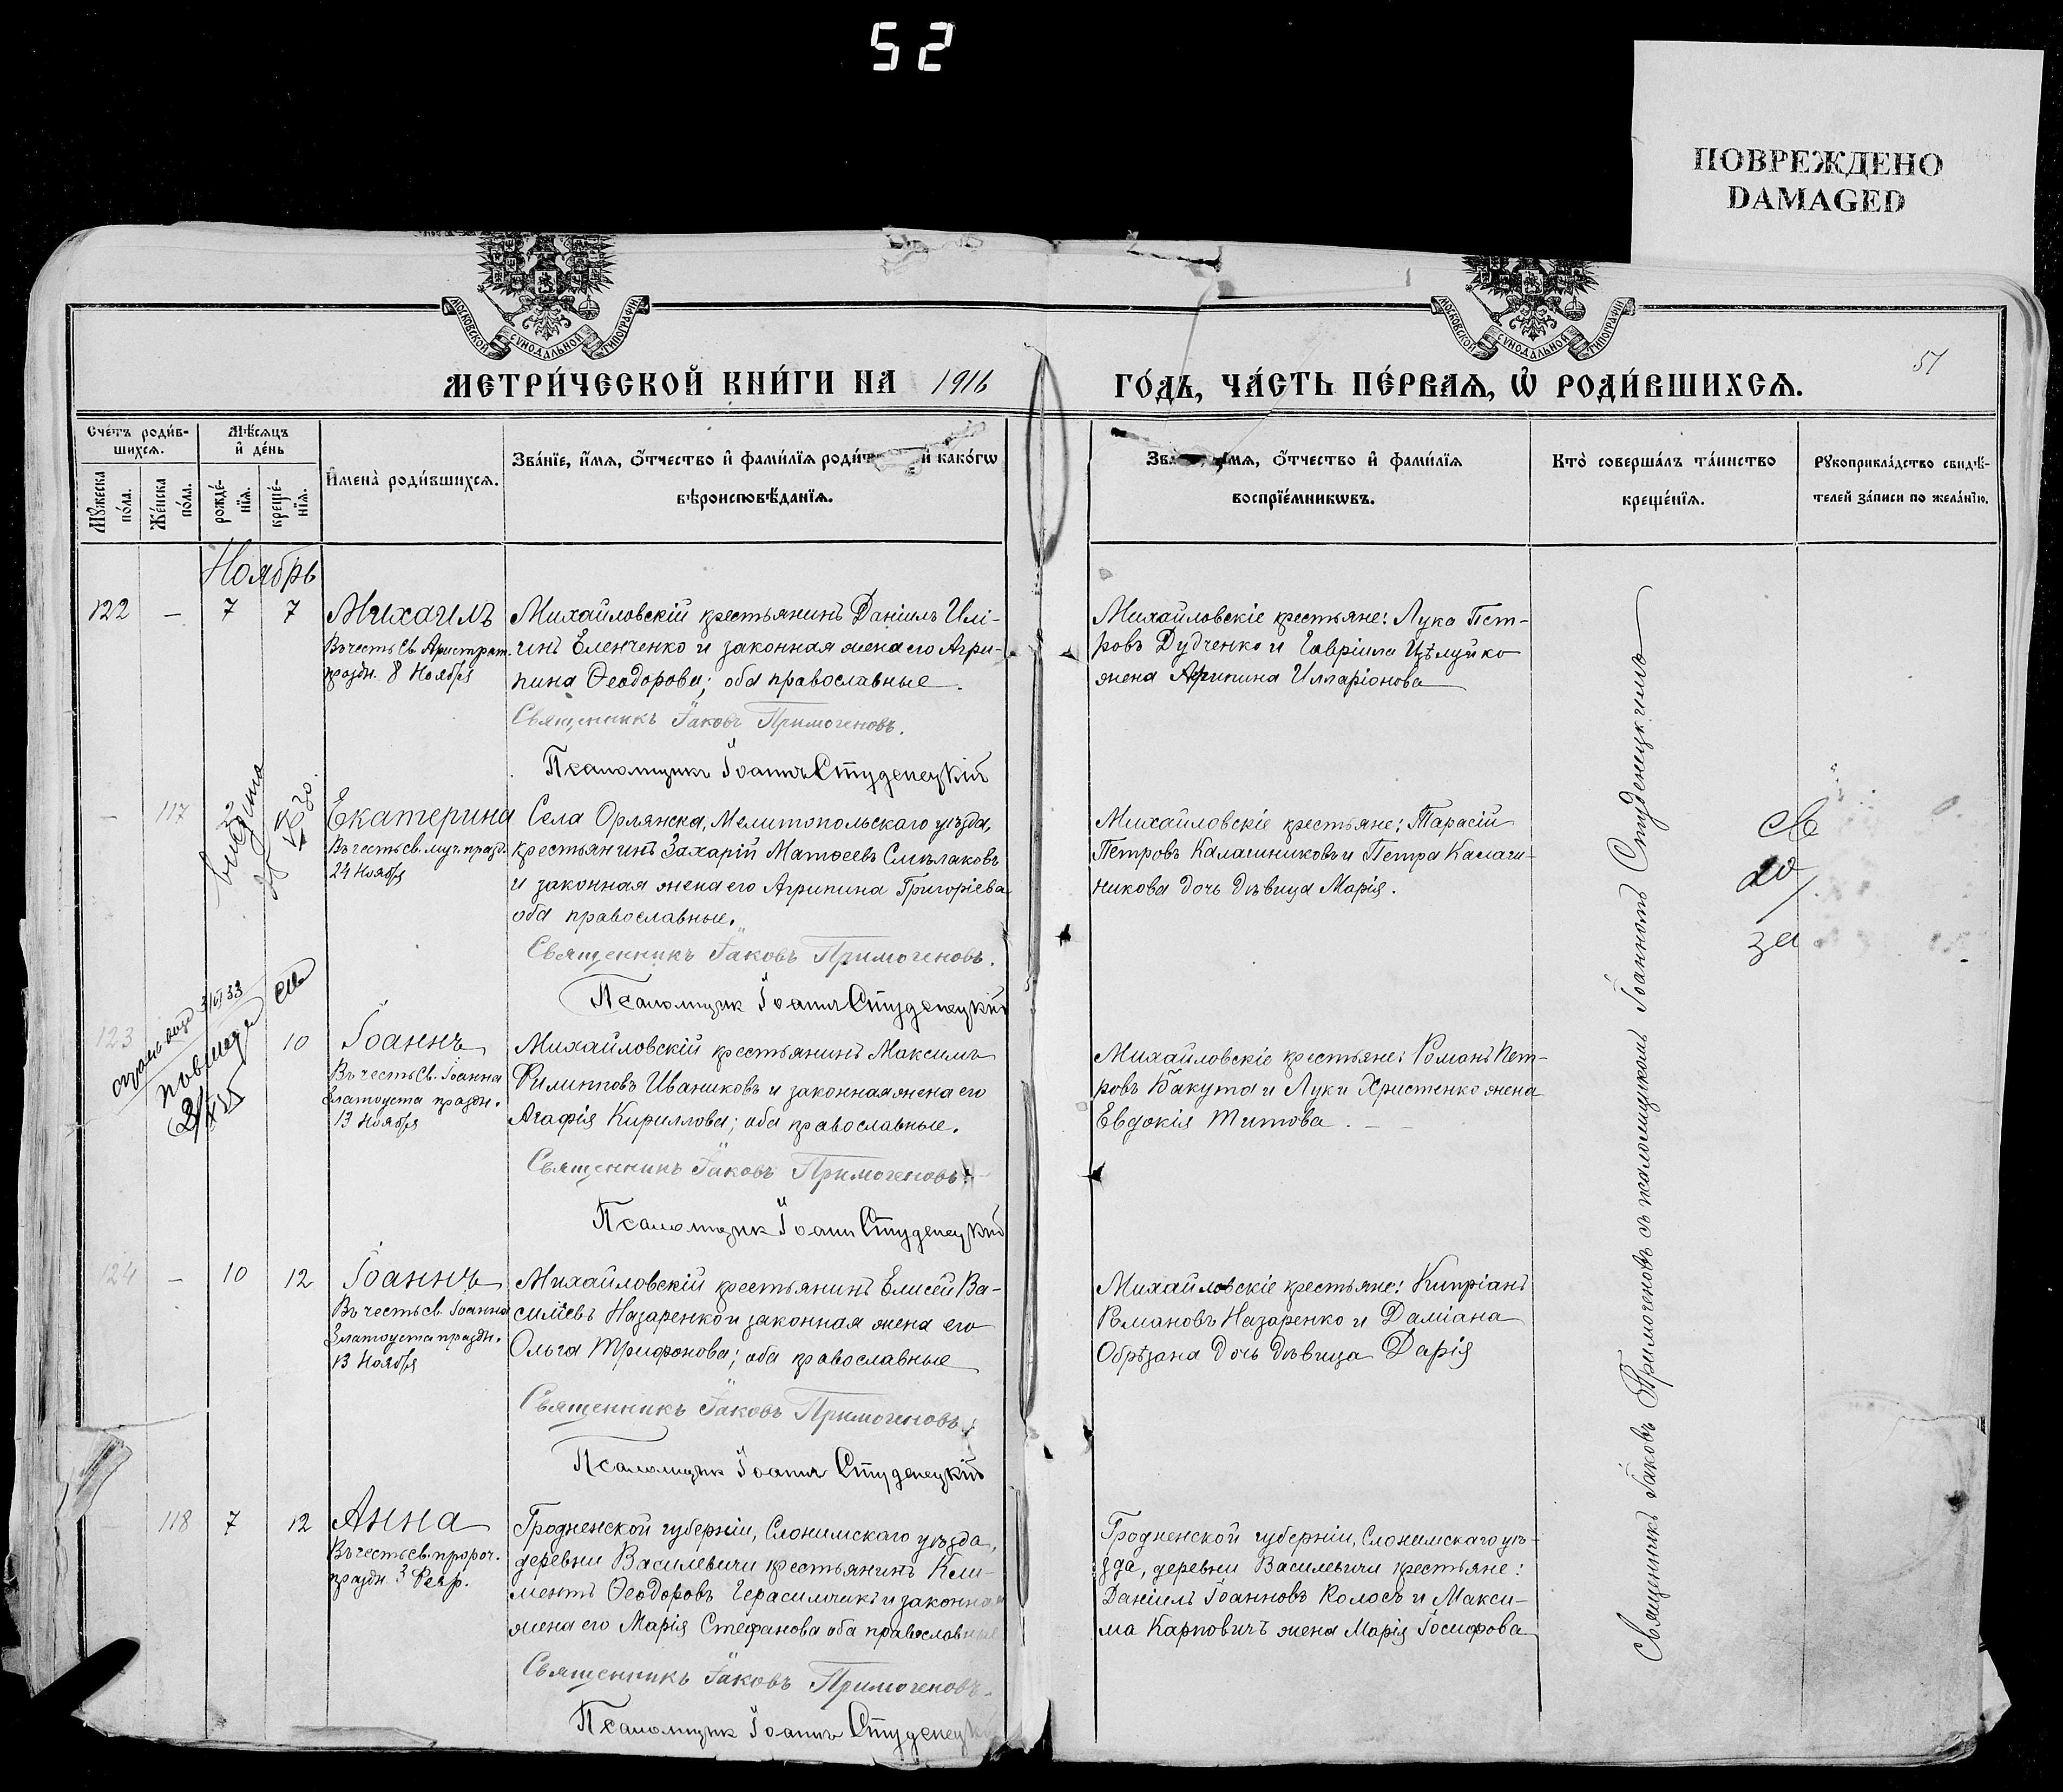 52
ПОВРЕЖДЕНО
DAMAGED
МОСКОВСКОЙ СѴНОДАЛЬНОЙ ТИПОГРАФІИ
МОСКОВСКОЙ СѴНОДАЛЬНОЙ ТИПОГРАФІИ
51
МЕТРИ́ЧЕСКОЙ КНИ́ГИ НА 1916 ГО́ДЪ, ЧА́СТЬ ПЕ́РВАѦ, Ѡ҆ РОДИ́ВШИХСѦ.
Сче́тъ роди́в-
шихсѧ.
Мѣ́сѧцъ
и҆ де́нь
Мꙋ́жеска
по́ла.
Же́нска
по́ла.
рожде́-
нїѧ.
креще́-
нїѧ.
И҆мена̀ роди́вшихсѧ.
Зва́нїе, и҆́мѧ, ѻ҆́тчество и҆ фами́лїѧ роди́т и҆ како́гѡ
вѣроисповѣ́данїѧ.
Зва мѧ, ѻ҆́тчество и҆ фами́лїѧ
воспрїе́мникѡвъ.
Кто̀ соверша́лъ та́инство
креще́нїѧ.
Рꙋкоприкла́дство свидѣ́-
телей за́писи по жела́нїю.
Ноябрь
122 — 7 7 Михаилъ
Въ честь Св. Архистрат.
праздн. 8 Ноября
Михайловскій крестьянинъ Даніилъ Илі-
инъ Еленченко и законная жена его Агри-
пина Ѳеодорова; оба православные.
Священникъ Іаковъ Примогеновъ.
Псаломщикъ Іоаннъ Студенецкій
Михайловскіе крестьяне: Лука Пет-
ровъ Дудченко и Гавріила Цѣлуйко
жена Агрипина Илларіонова
— 117
выдана
Екатерина
Въ честь св. муч. празд.
24 Ноября
Села Орлянска, Мелитопольскаго уѣзда,
крестьянинъ Захарій Матѳеевъ Смѣлаковъ
и законная жена его Агрипина Григоріева
оба православные.
Священникъ Іаковъ Примогеновъ.
Псаломщик Іоаннъ Студенецкій
Михайловскіе крестьяне: Тарасій
Петровъ Калашниковъ и Петра Калаш-
никова дочь дѣвица Марія.
за
123 10 Іоаннъ
Въ честь Св. Іоанна
Златоуста праздн.
13 Ноября
Михайловскій крестьянинъ Максимъ
Филипповъ Иваниковъ и законная жена его
Агафія Кириллова; оба православные.
Священникъ Іаковъ Примогеновъ
Псаломщик Іоанн Студенецкій
Михайловскіе крестьяне: Романъ Пет-
ровъ Бакута и Луки Христенко жена
Евдокія Титова.
124 — 10 12 Іоаннъ
Въ честь св. Іоанна
Златоуста праздн.
13 Ноября
Михайловскій крестьянинъ Елисей Ва-
силіевъ Назаренко и законная жена его
Ольга Трифонова; оба православные
Священникъ Іаковъ Примогеновъ
Псаломщик Іоаннъ Студенецкій
Михайловскіе крестьяне: Кипріанъ
Романовъ Назаренко и Даміана
Обрѣзана дочь дѣвица Дарія
118 7 12 Анна
Въ честь св. пророч.
праздн. 3 Февр.
Гродненской губерніи, Слонимскаго уѣзда,
деревни Василевичи крестьянинъ Кли-
ментъ Ѳеодоровъ Герасимчикъ и законная
жена его Марія Стефанова оба православные
Священникъ Іаковъ Примогеновъ.
Псаломщик Іоаннъ Студенецкій
Гродненской губерніи, Слонимскаго уѣ-
зда, деревни Василевичи крестьяне:
Даніилъ Іоанновъ Колосъ и Макси-
ма Карповичъ жена Марія Іосифова
Священникъ Іаковъ Примогеновъ съ псаломщикомъ Іоанномъ Студенецкимъ